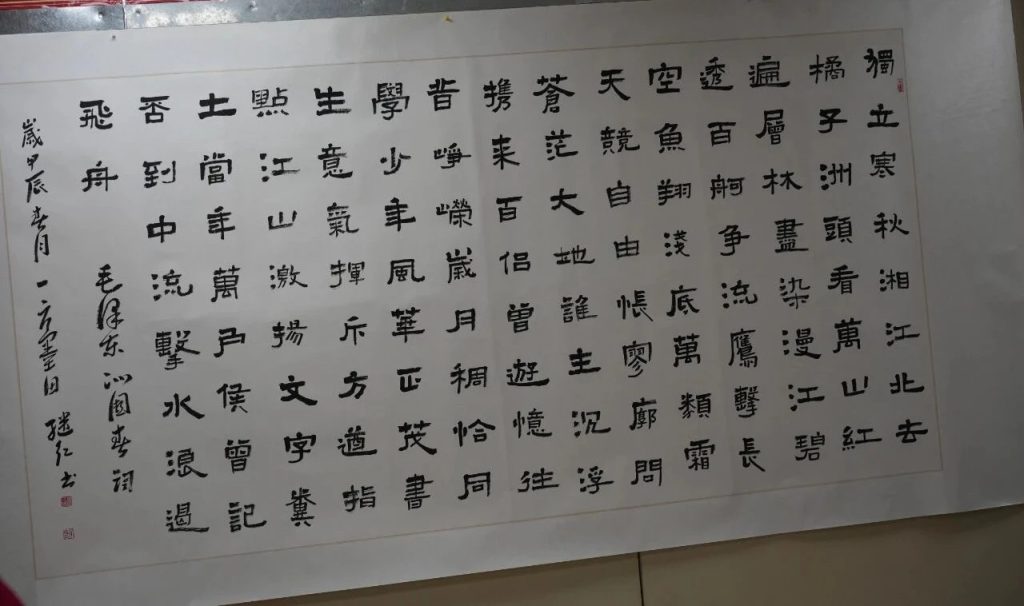 獨立寒秋湘江北去
橘子洲頭看萬山紅
遍層林盡染漫江碧
透百舸争流鷹擊長
空魚翔淺底萬類霜
天競自由悵寥廓問
蒼茫大地誰主沉浮
携来百侣曾遊憶往
昔崢嶸歲月稠恰同
學少年風華正茂書
生意氣揮斥方遒指
點江山激揚文字糞
土當年萬户侯曾記
否到中流擊水浪遏
飛舟
毛泽东沁園春詞
歲甲辰春月一方墨田继仁书